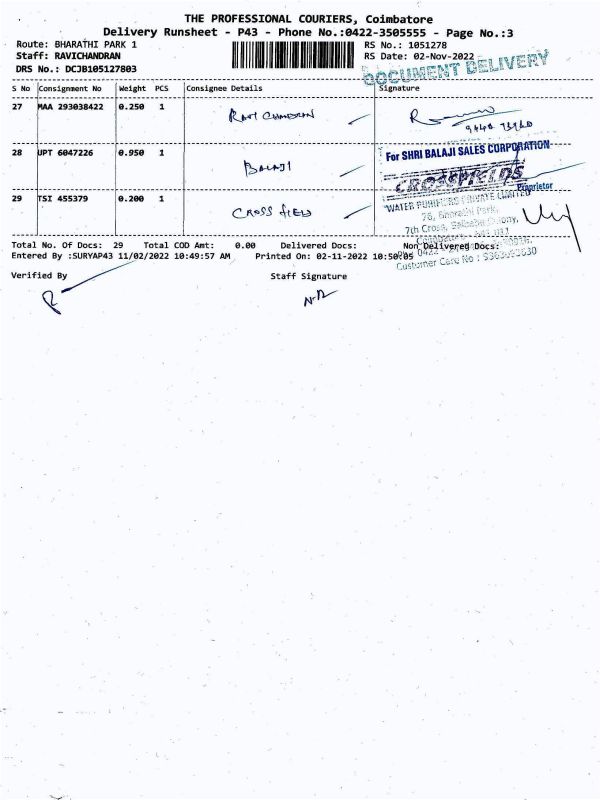 THE PROFESSIONAL COURIERS, Coimbatore
Delivery Runsheet - P43 - Phone No.:0422-3505555 - Page No.:3
Route: BHARATHI PARK 1
RS No.: 1051278
Staff: RAVICHANDRAN
RS Date: 02-Nov-2022
DRS No.: DCJB105127803
DOCUMENT DELIVERY
S No Consignment No Weight PCS Consignee Details Signature
27 MAA 293038422 0.250 1 RAVI CHANDRAN
28 UPT 6047226 0.950 1 BALAJI
For SHRI BALAJI SALES CORPORATION
Proprietor
29 TSI 455379 0.200 1 CROSS FIELD
CROSSFIELDS
WATER PURIFIERS PRIVATE LIMITED
76, Bharathi Park,
7th Cross, Colony,
Total No. Of Docs: 29 Total COD Amt: 0.00 Delivered Docs: Non Delivered Docs:
Entered By :SURYAP43 11/02/2022 10:49:57 AM Printed On: 02-11-2022 10:50:05
Customer Care No :
Verified By Staff Signature